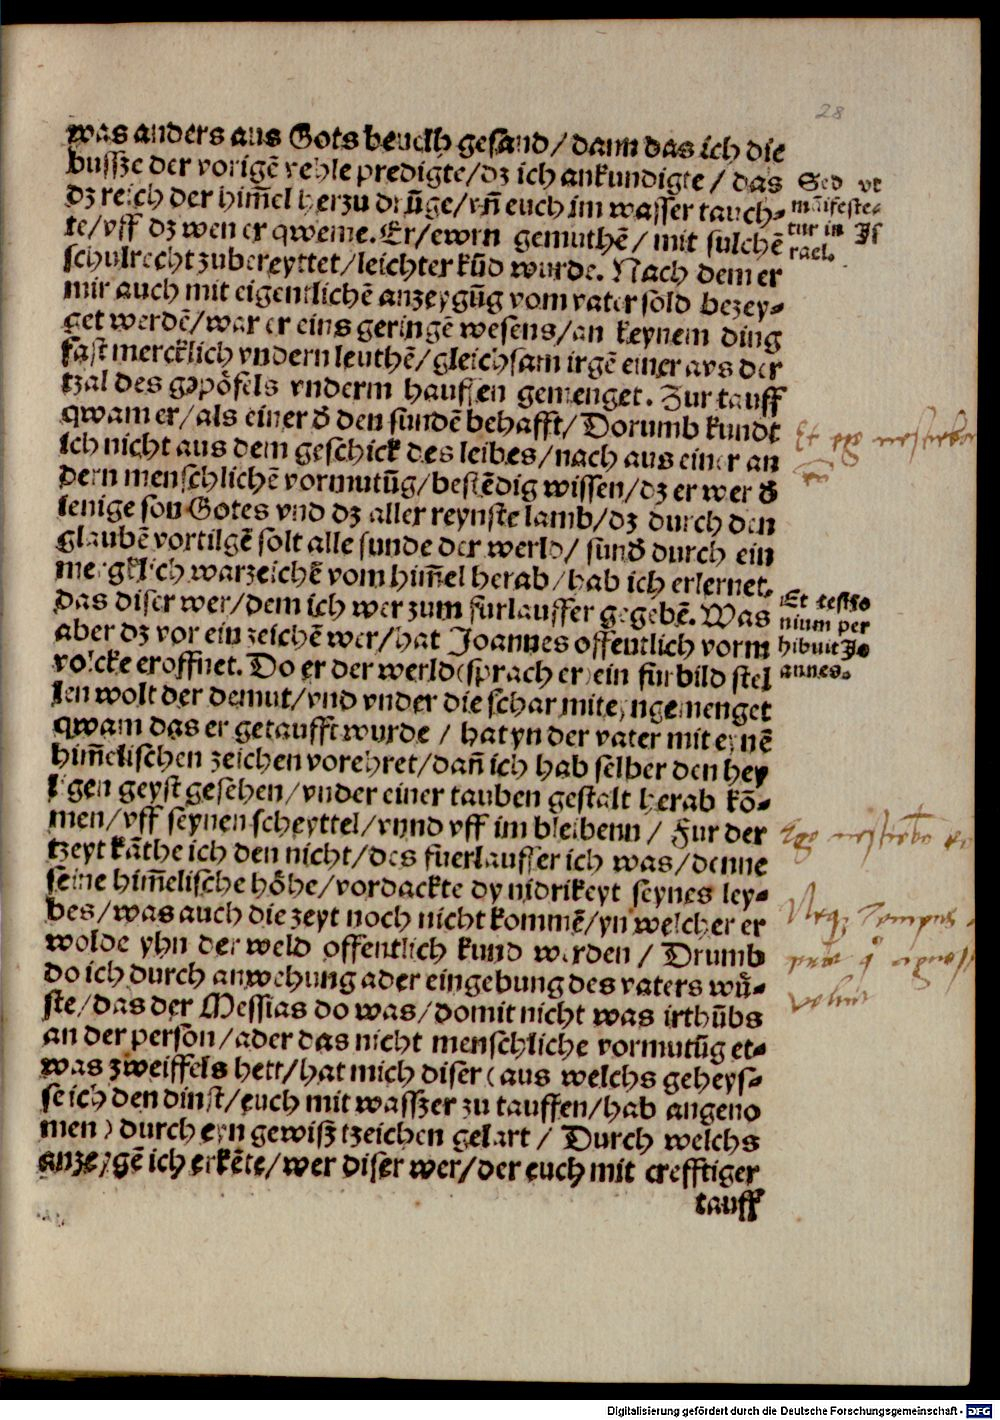 28
was anders aus Gots beuelh gesand/ dann das ich die
bussze der vorigē vehle predigte/dz ich ankundigte / das
dz reich der him̄el herzu drūge/vn̄ euch im wasser tauch-
te/vff dz wen er qweme. Er/ewrn gemuthē/ mit sulchē
schulrecht zubereyttet/leichter kūd wurde. Nach dem er
mir auch mit eigentlichē anzeygūg vom vater sold bezey-
get werdē/war er eins geringē wesens/an keynem ding
fast mercklich vndern leuthē/gleichsam irgē einer avs der
tzal des gepöfels vnderm hauffen gemenget. Zur tauff
qwam er/als einer d̄ den sundē behafft/ Dorumb kundt
ich nicht aus dem geschick des leibes/nach aus einer an
dern menschlichē vormutūg/bestēdig wissen/dz er wer d̄
ienige son Gotes vnd dz aller reynste lamb/dz durch den
glaubē vortilgē solt alle sunde der werld/ sūnd̄ durch ein
mergklich warzeichē vom him̄el herab/hab ich erlernet.
das diser wer/dem ich wer zum furlauffer gegebē. Was
aber dz vor ein zeichē wer/hat Joannes offentlich vorm
volcke eroffnet. Do er der werld(sprach er)ein furbild stel
len wolt der demut/vnd vnder die schar mit eyngemenget
qwam das er getaufft wurde / hat yn der vater mit eynē
him̄elischen zeichen vorehret/dan̄ ich hab selber den hey
ligen geyst gesehen/vnder einer tauben gestalt herab kō-
men/vff seynen scheyttel/vnnd vff im bleibenn / Fur der
tzeyt kāthe ich den nicht/des fuerlauffer ich was/denne
seine him̄elische höhe/vordackte dy nidrikeyt seynes ley-
bes/was auch die zeyt noch nicht kommē/yn welcher er
wolde yhn der weld offentlich kund werden / Drumb
do ich durch anwehung ader eingebung des vaters wů-
ste/das der Messias do was/domit nicht was irthūbs
an der person/ader das nicht menschliche vormutūg et-
was zweiffels hett/hat mich diser (aus welchs geheys-
se ich den dinst/euch mit wasszer zu tauffen/hab angeno
men) durch eyn gewiß tzeichen gelart / Durch welchs
anzeygē ich erkēte/wer diser wer/der euch mit crefftiger
tauff
Sed vt
māifeste-
tur in Is
rael.
Et ego nesciebam
eū
Et testio
nium per
hibuit Jo
annes.
Ego nesciebā eū
Neq; tempus
volunt
Digitalisierung gefördert durch die Deutsche Forschungsgemeinschaft - DFG